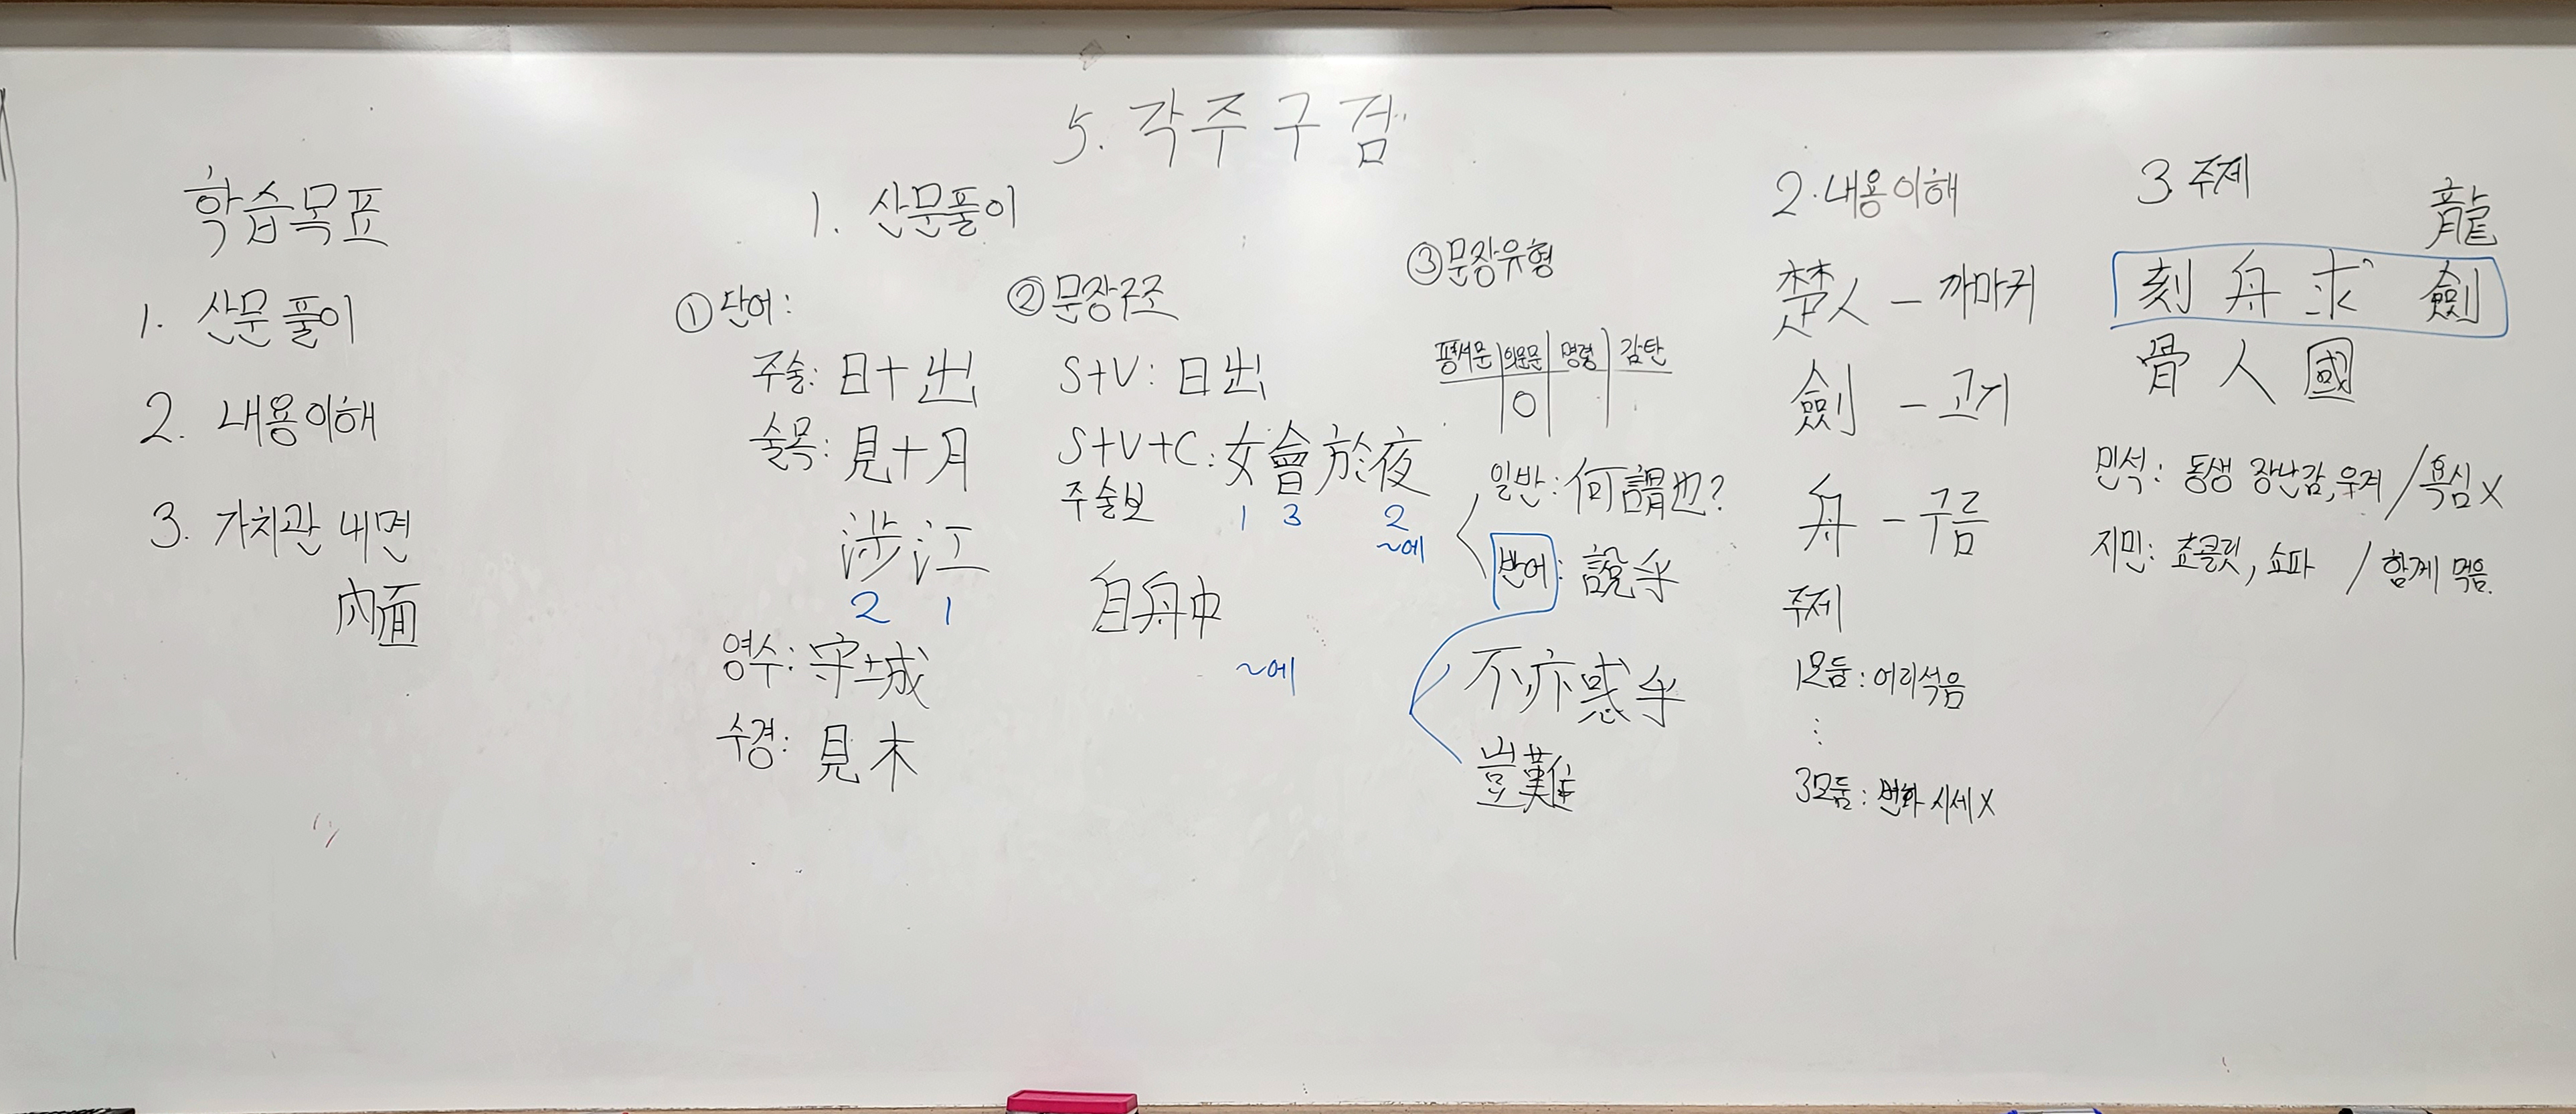 5. 각주구검
학습목표
1. 산문풀이
2. 내용이해
3. 가치관 내면
內面
1. 산문풀이
① 단어:
주술: 日+出
술목: 見+月
涉江
2 1
영수: 守+城
수경: 見木
② 문장구조
S+V: 日出
S+V+C: 女會於夜
주술보 1 3 2
~에
自舟中
~에
③ 문장유형
평서문 의문문 명령 감탄
O
일반: 何謂也?
반어: 說乎
不亦惑乎
豈難
2. 내용이해
楚人 - 까마귀
劍 - 고기
舟 - 구름
주제
1모둠: 어리석음
⋮
3모둠: 변화 시세 X
3 주제
龍
刻舟求劍
骨人國
민석: 동생 장난감, 우겨 / 욕심 X
지민: 쵸클릿, 쇼파 / 함께 먹음.